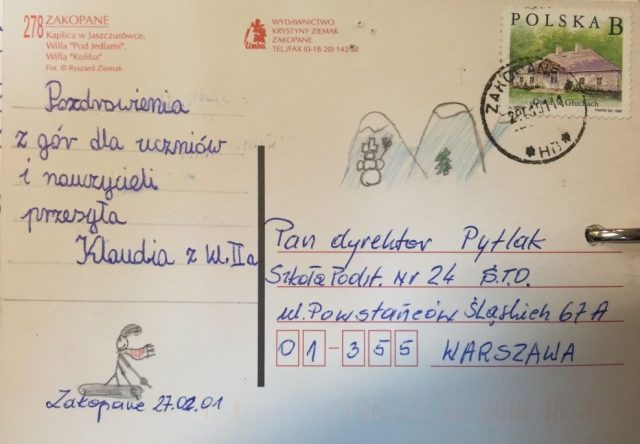 278 ZAKOPANE
Kaplica w Jaszczurówce,
Willa "Pod Jedlami",
Willa "Koliba"
Fot. © Ryszard Ziemak
WYDAWNICTWO
KRYSTYNY ZIEMAK
ZAKOPANE
TEL./FAX (0-18 20)
limba
POLSKA B
ZAKOPANE
Pozdrowienia
z gór dla uczniów
i nauczycieli
przesyła
Klaudia z kl. II a
Pan dyrektor Pytlak
Szkoła Podst. Nr 24 S.T.O.
ul. Powstańców Śląskich 67A
01-355 WARSZAWA
Zakopane 27.02.01